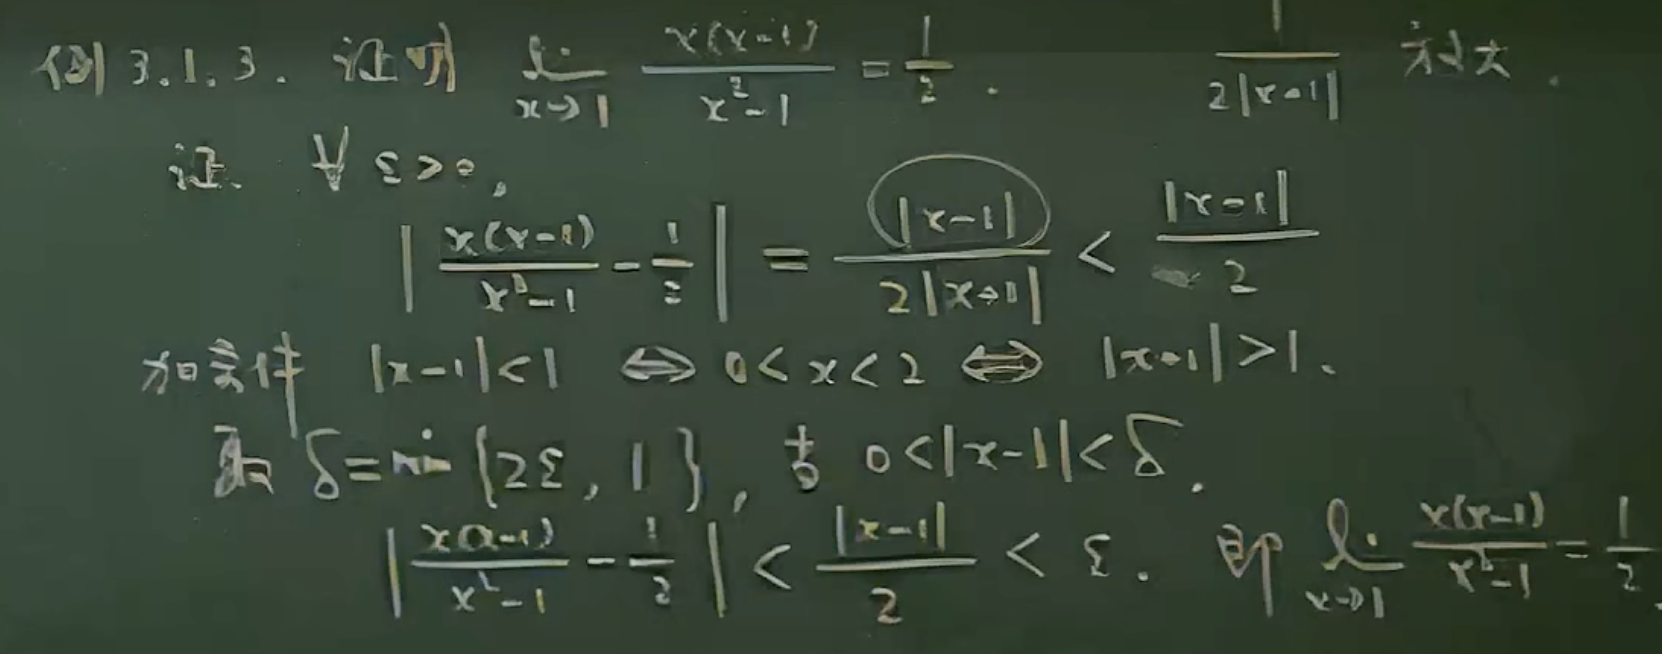 例 3.1.3. 证明 lim_{x→1} x(x-1)/(x²-1) = 1/2. 1/(2|x+1|) 放大.
证. ∀ ε>0,
|x(x-1)/(x²-1) - 1/2| = |x-1|/(2|x+1|) < |x-1|/2
加条件 |x-1|<1 ⇔ 0<x<2 ⇔ |x+1|>1.
取 δ=min{2ε, 1}, 当 0<|x-1|<δ.
|x(x-1)/(x²-1) - 1/2| < |x-1|/2 < ε. 即 lim_{x→1} x(x-1)/(x²-1) = 1/2.